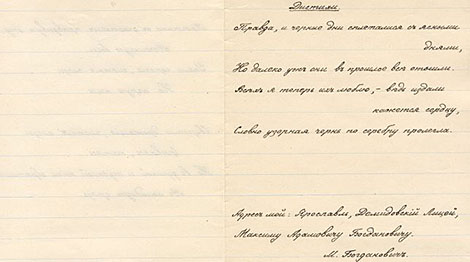 Дистихи.
Правда, и черные дни сплетались съ ясными
днями,
Но далеко ужъ они въ прошлое всѣ отошли.
Всѣхъ я теперь ихъ люблю, – вѣдь издали
кажется сердцу,
Словно узорная чернь по серебру пролегла.
Адресъ мой: Ярославль, Демидовскій Лицей,
Максиму Адамовичу Богдановичу.
М. Богдановичъ.